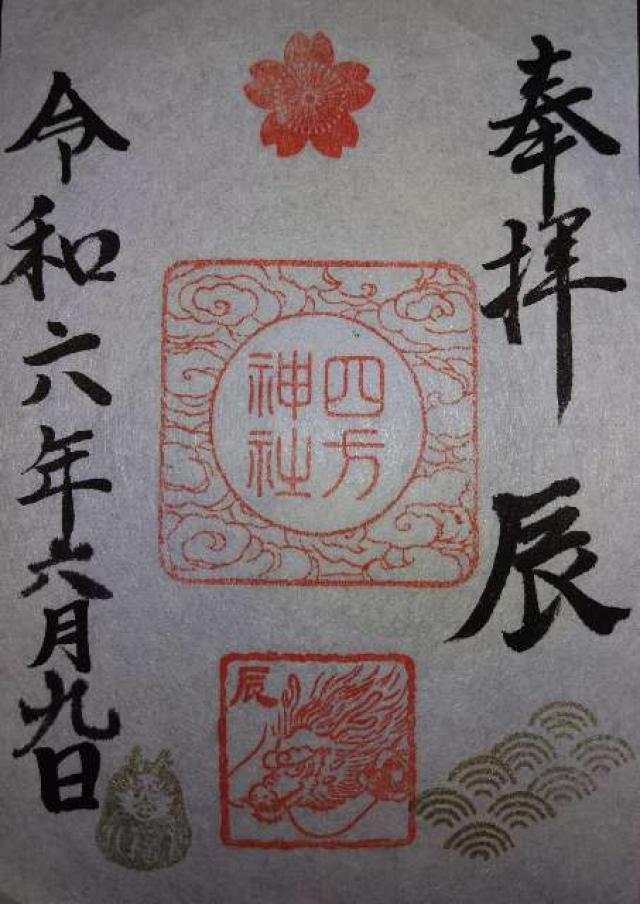 奉拝
辰
四方
神社
辰
令和六年六月九日